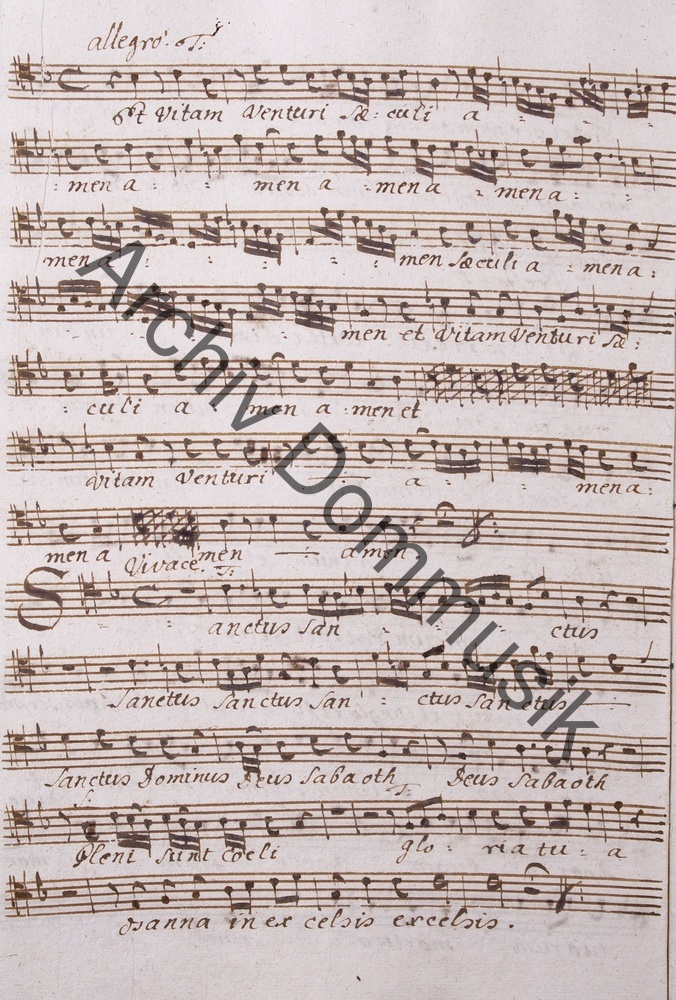 allegro. T:
Et Vitam Venturi Sæ: culi a - : :
: men a : : men a : men a : men a : : :
men a : : : : men Sæculi a : men a :
: : : men et Vitam Venturi Sæ:
: culi a : men a : men et
Vitam Venturi a : : men a :
men a men amen
Vivace. T:
Sanctus San : : : ctus
Sanctus Sanctus San : ctus Sanctus
Sanctus Dominus Deus Sabaoth Deus Sabaoth
S: T:
Pleni Sunt Coeli glo : ria tu : a
osanna in ex celsis excelsis.
Archiv Dommusik